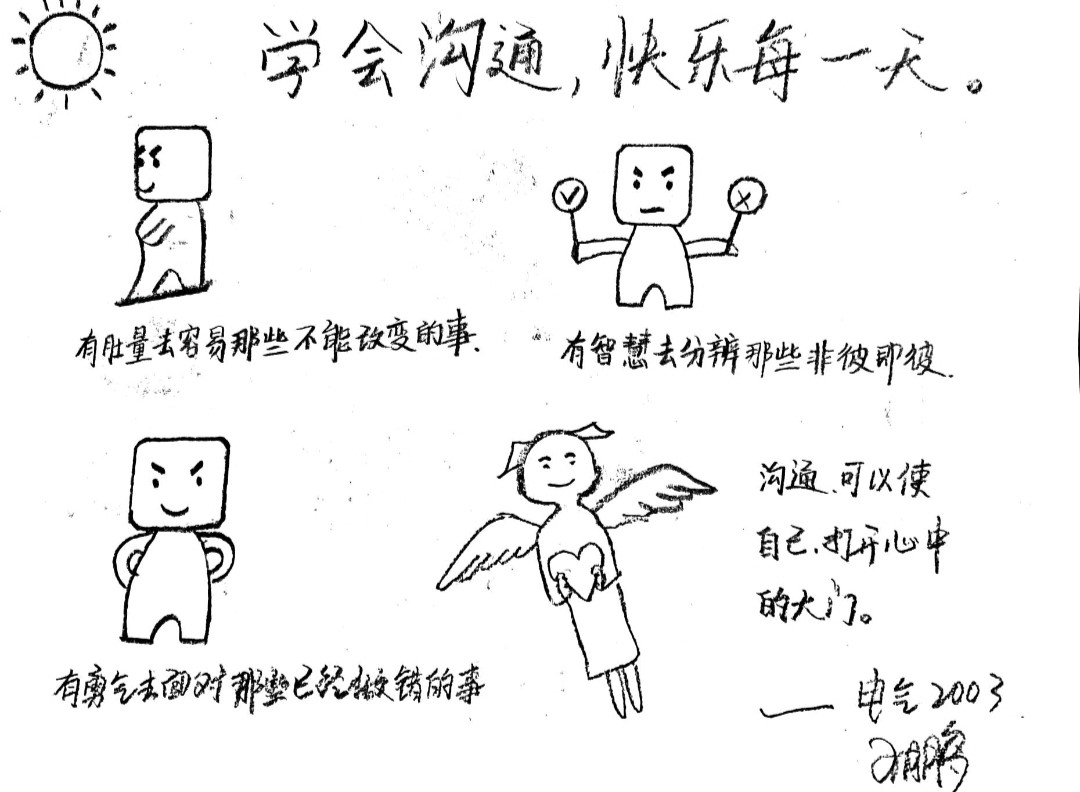 学会沟通,快乐每一天。
有肚量去容易那些不能改变的事.
有智慧去分辨那些非彼即彼.
有勇气去面对那些已经做错的事
沟通、可以使
自己、打开心中
的大门。
——电气2003